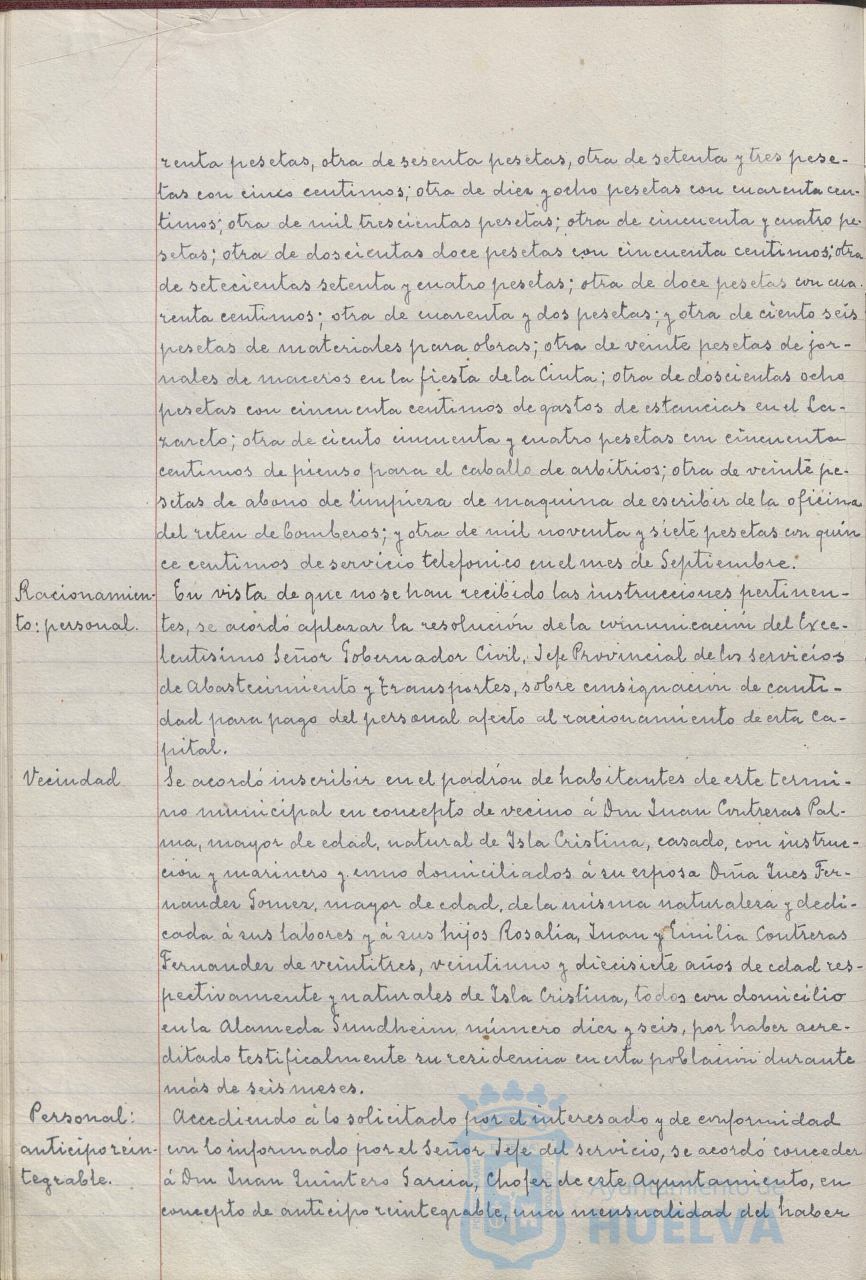 renta pesetas, otra de sesenta pesetas, otra de setenta y tres pese-
tas con cinco centimos; otra de diez y ocho pesetas con cuarenta cen-
timos; otra de mil trescientas pesetas; otra de cincuenta y cuatro pe-
setas; otra de doscientas doce pesetas con cincuenta centimos; otra
de setecientas setenta y cuatro pesetas; otra de doce pesetas con cua-
renta centimos; otra de cuarenta y dos pesetas; y otra de ciento seis
pesetas de materiales para obras; otra de veinte pesetas de jor-
nales de maceros en la fiesta de la Cinta; otra de doscientas ocho
pesetas con cincuenta centimos de gastos de estancias en el La-
zareto; otra de ciento cincuenta y cuatro pesetas con cincuenta
centimos de pienso para el caballo de arbitrios; otra de veinte pe-
setas de abono de limpieza de maquina de escribir de la oficina
del reten de bomberos; y otra de mil noventa y siete pesetas con quin
ce centimos de servicio telefonico en el mes de Septiembre.
Racionamien-
to: personal.
En vista de que no se han recibido las instrucciones pertinen-
tes, se acordó aplazar la resolución de la comunicación del Exce-
lentísimo Señor Gobernador Civil, Jefe Provincial de los servicios
de Abastecimiento y Transportes, sobre consignación de canti-
dad para pago del personal afecto al racionamiento de esta Ca-
pital.
Vecindad
Se acordó inscribir en el padrón de habitantes de este termi-
no municipal en concepto de vecino á Don Juan Contreras Pal-
ma, mayor de edad, natural de Isla Cristina, casado, con instruc-
ción y marinero y como domiciliados á su esposa Doña Ines Fer-
nandez Gomez, mayor de edad, de la misma naturaleza y dedi-
cada á sus labores y á sus hijos Rosalía, Juan y Emilia Contreras
Fernandez de veintitres, veintiuno y diecisiete años de edad res-
pectivamente y naturales de Isla Cristina, todos con domicilio
en la Alameda Sundheim número diez y seis, por haber acre-
ditado testificalmente su residencia en esta población durante
más de seis meses.
Personal:
anticipo rein-
tegrable.
Accediendo á lo solicitado por el interesado y de conformidad
con lo informado por el Señor Jefe del servicio, se acordó conceder
á Don Juan Quintero Garcia, Chofer de este Ayuntamiento, en
concepto de anticipo reintegrable, una mensualidad del haber
Ayuntamiento de
HUELVA